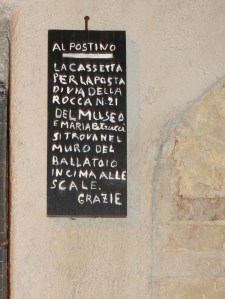 AL POSTINO
LA CASSETTA
PER LA POSTA
DI VIA DELLA
ROCCA N. 21
DEL MUSEO
E MARIA Petrucci
SI TROVA NEL
MURO DEL
BALLATOIO
IN CIMA ALLE
SCALE.
GRAZIE